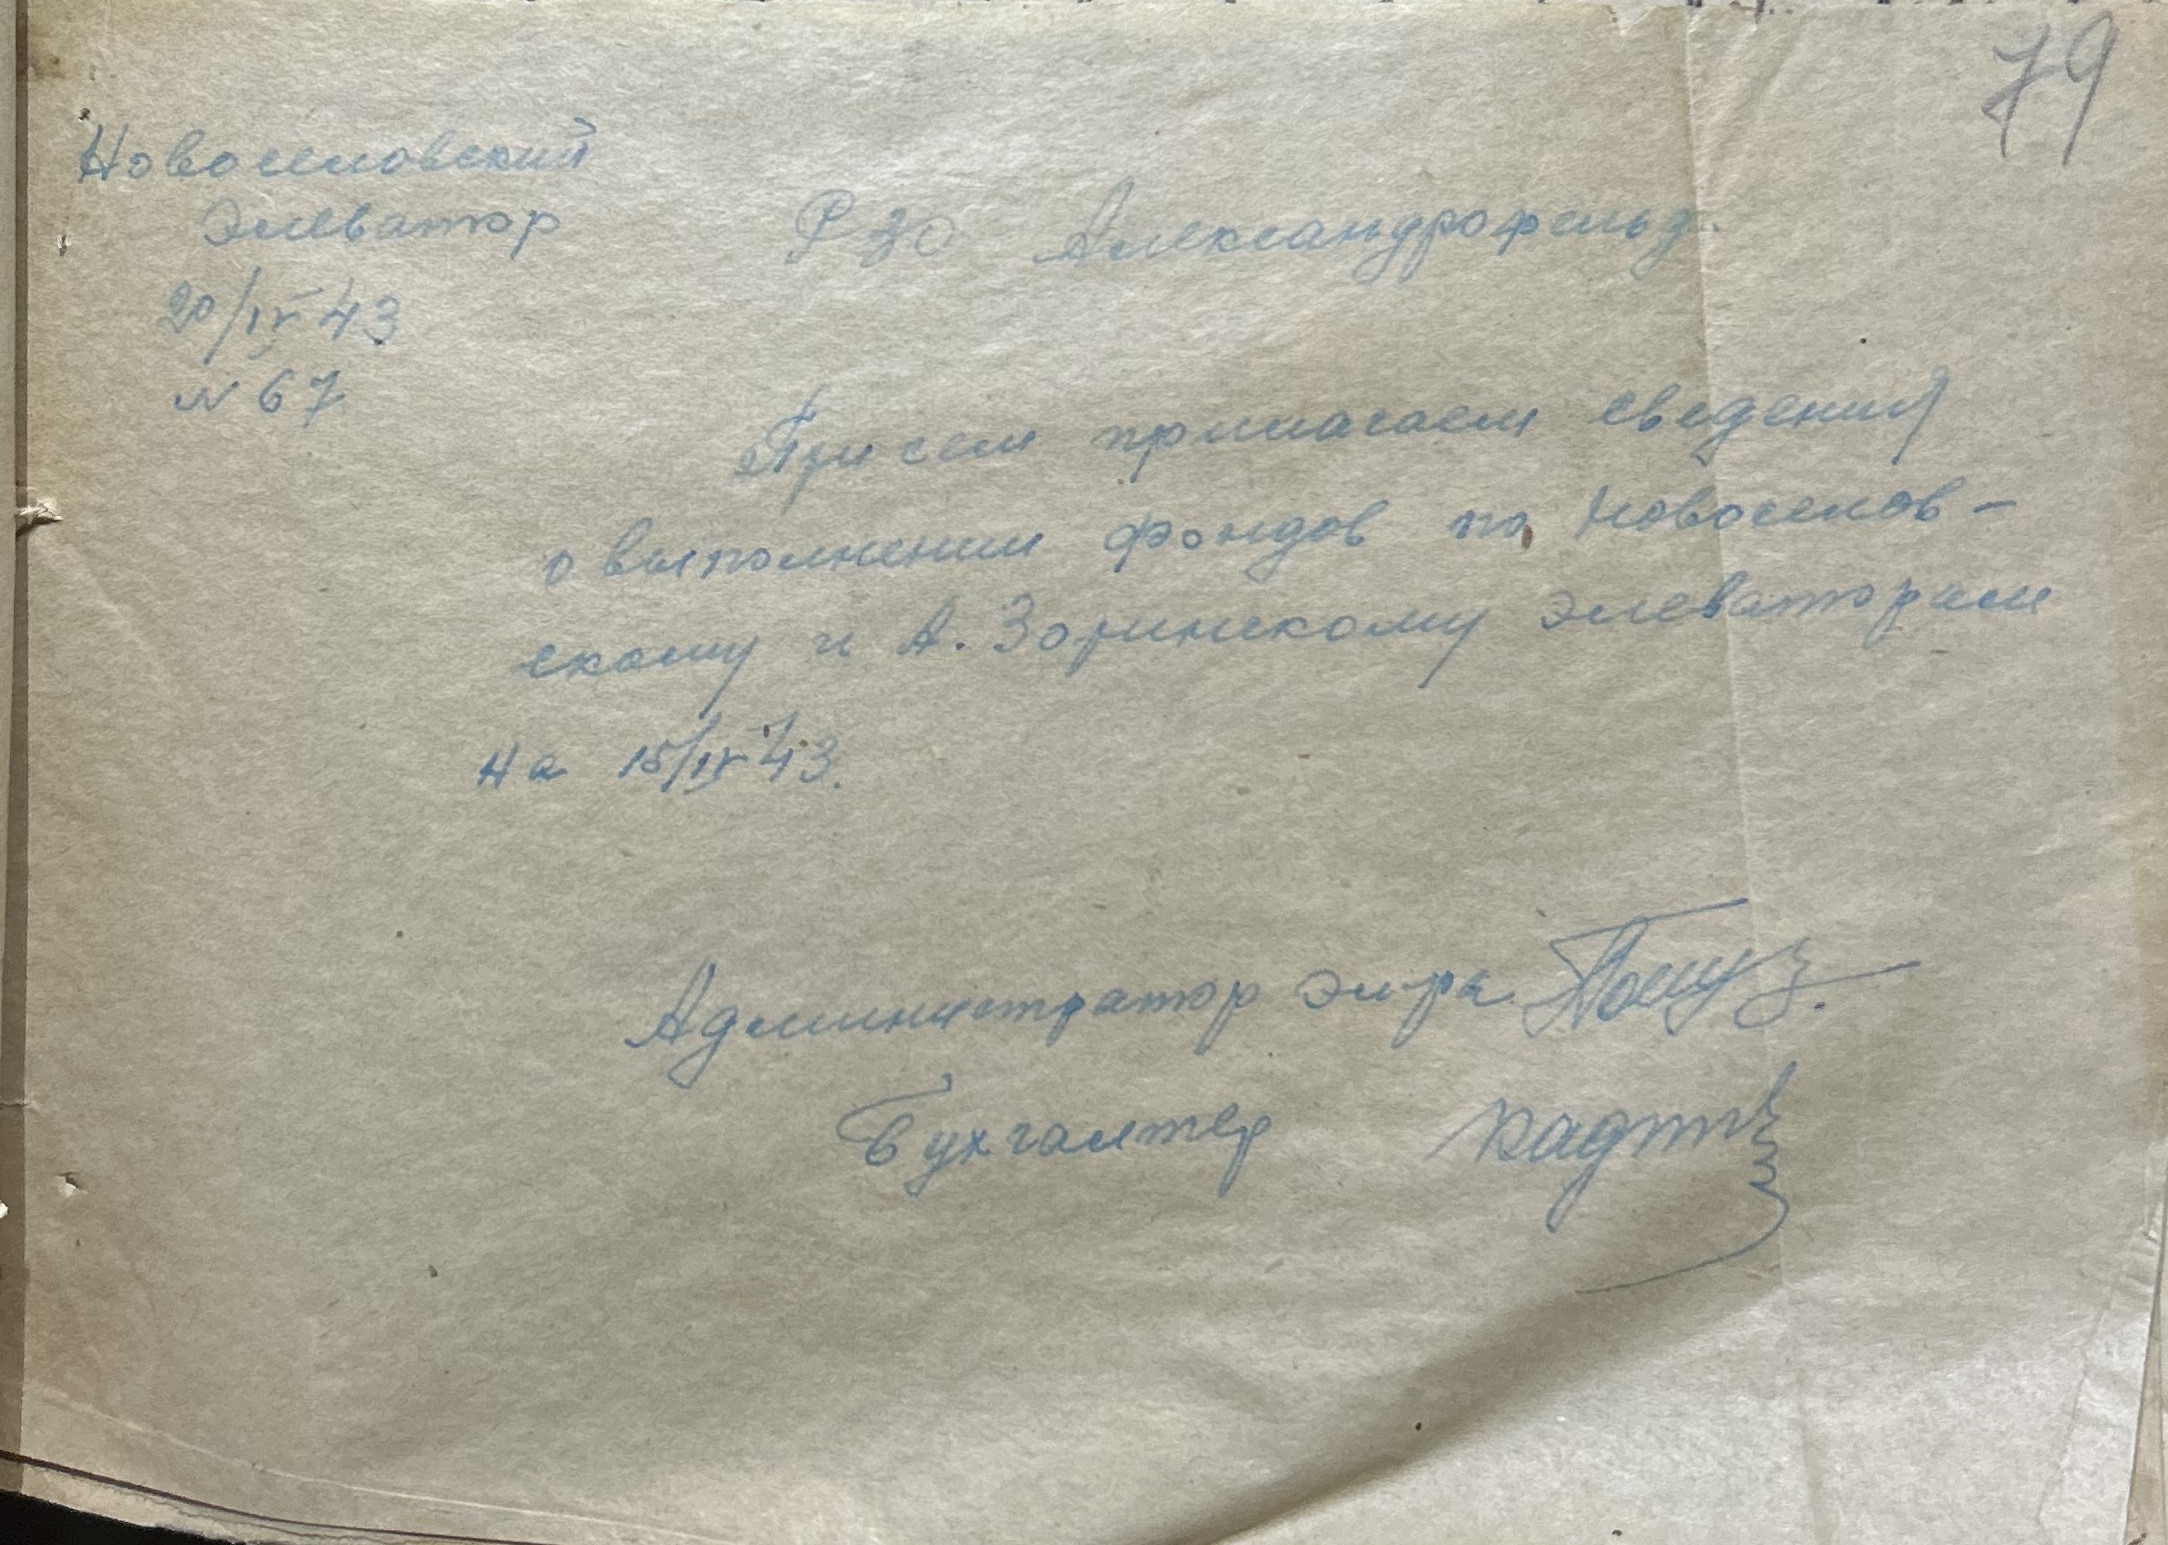 79
Новоселовский
Элеватор
20/IV 43
N 67
РЗО Александрофельд.
При сем прилагаем сведения
о выполнении фондов по Новоселов-
скому и А. Зоринскому элеваторам
на 15/IV 43.
Администратор эл-ра
Бухгалтер